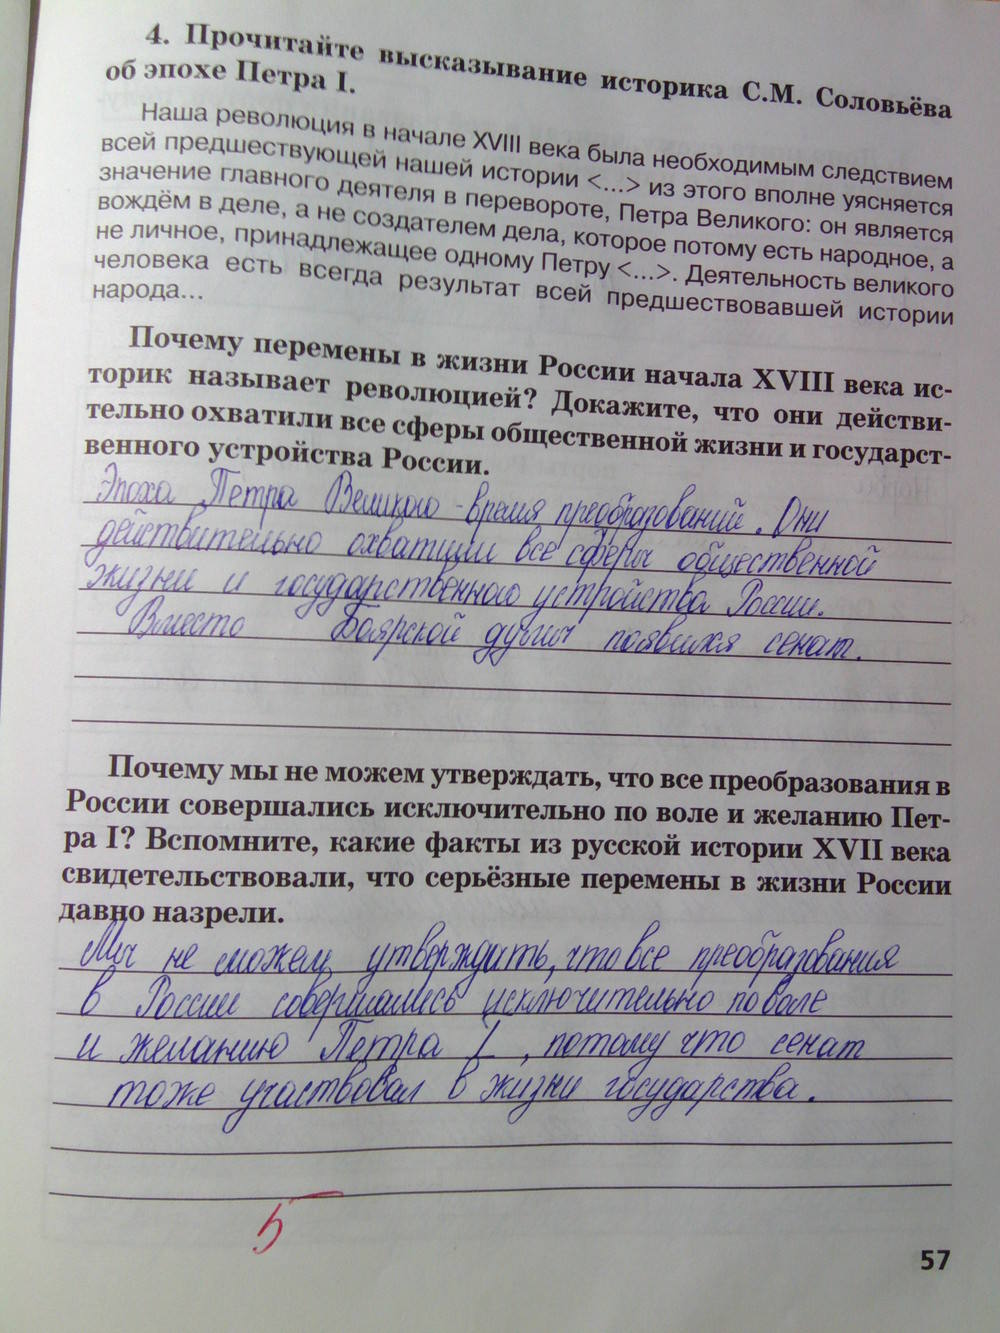 4. Прочитайте высказывание историка С.М. Соловьёва
об эпохе Петра I.
Наша революция в начале XVIII века была необходимым следствием
всей предшествующей нашей истории <...> из этого вполне уясняется
значение главного деятеля в перевороте, Петра Великого: он является
вождём в деле, а не создателем дела, которое потому есть народное, а
не личное, принадлежащее одному Петру <...>. Деятельность великого
человека есть всегда результат всей предшествовавшей истории
народа...
Почему перемены в жизни России начала XVIII века ис-
торик называет революцией? Докажите, что они действи-
тельно охватили все сферы общественной жизни и государст-
венного устройства России.
Эпоха Петра Великого - время преобразований. Они
действительно охватили все сферы общественной
жизни и государственного устройства России.
Вместо Боярской думы появился сенат.
Почему мы не можем утверждать, что все преобразования в
России совершались исключительно по воле и желанию Пет-
ра I? Вспомните, какие факты из русской истории XVII века
свидетельствовали, что серьёзные перемены в жизни России
давно назрели.
Мы не можем утверждать, что все преобразования
в России совершались исключительно по воле
и желанию Петра I, потому что сенат
тоже участвовал в жизни государства.
5
57